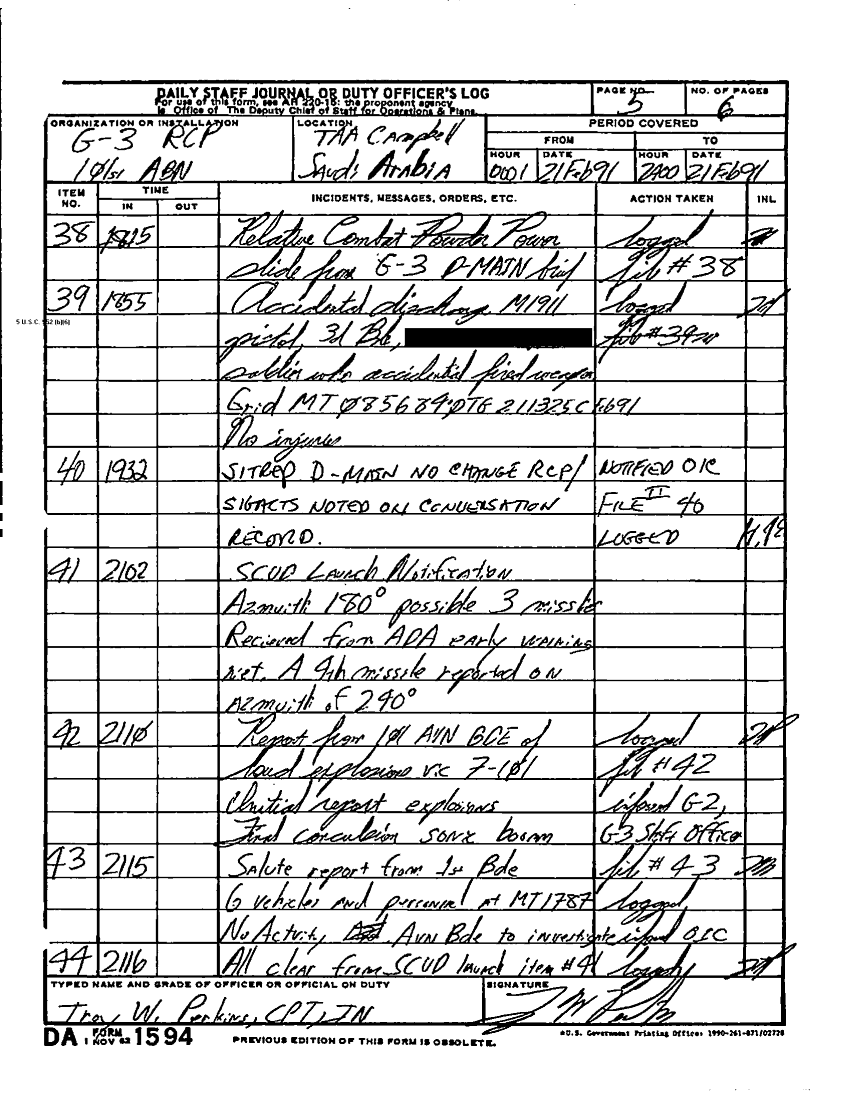 DAILY STAFF JOURNAL OR DUTY OFFICER'S LOG
For use of this form, see AR 220-15; the proponent agency
is Office of The Deputy Chief of Staff for Operations & Plans.
PAGE NO. 5
NO. OF PAGES 6
ORGANIZATION OR INSTALLATION
G-3 RCP
101st ABN
LOCATION
TAA Campbell
Saudi Arabia
PERIOD COVERED
FROM TO
HOUR DATE HOUR DATE
0001 21Feb91 2400 21Feb91
ITEM NO. TIME IN OUT INCIDENTS, MESSAGES, ORDERS, ETC. ACTION TAKEN INL
38 1815 Relative Combat Powder Power logged
slide from G-3 D-MAIN brief file # 38
39 1855 Accidental discharge M1911 logged
5 U.S.C. 552 (b)(6)
pistol, 3d Bde, file #39
soldier who accidential fired weapon
Grid MT Ø85684; DTG 211325C Feb91
No injures
40 1932 SITREP D-MAIN NO CHANGE RCP/ NOTIFIED OIC
SIGACTS NOTED ON CONVERSATION FILE 40
RECORD. LOGGED
41 2102 SCUD Launch Notification
Azmuith 180° possible 3 missles
Recieved from ADA early warning
net. A 4th missile reported on
Azmuith of 240°
42 211Ø Report from 1Ø1 AVN BDE of logged
loud explosions vic 7-101 file #42
Initial report explosions informed G2,
Final conculsion sonic boom G3 Staff Officer
43 2115 Salute report from 1st Bde file # 43
6 vehicles and personnel at MT1787 logged,
No Activity AVN Bde to investigate informed OIC
44 2116 All clear from SCUD launch item #41 logged
TYPED NAME AND GRADE OF OFFICER OR OFFICIAL ON DUTY
Troy W. Perkins, CPT, IN
SIGNATURE
DA FORM 1594
1 NOV 62
PREVIOUS EDITION OF THIS FORM IS OBSOLETE.
*U.S. Government Printing Office: 1990-261-871/02728